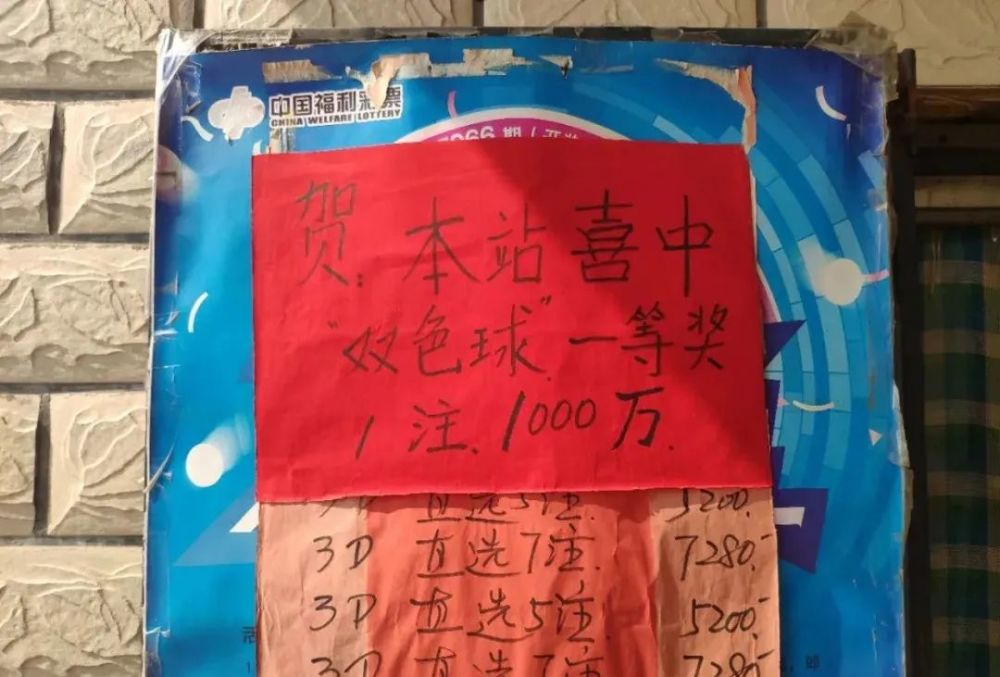 中国福利彩票
CHINA WELFARE LOTTERY
066期
贺:本站喜中
"双色球"一等奖
1注.1000万.
直选5注. 5200.
3D 直选7注. 7280.-
3D 直选5注. 5200.-
3D 直选7注 7280-